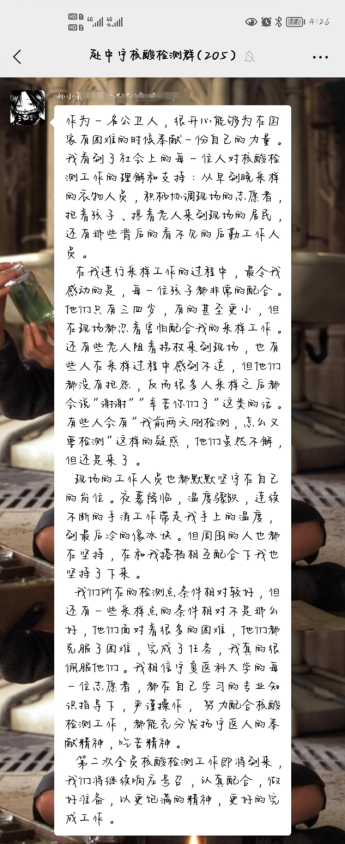 4:26
赴中宁核酸检测群(205)
作为一名公卫人，很开心能够为在国
家有困难的时候奉献一份自己的力量。
我看到了社会上的每一位人对核酸检
测工作的理解和支持：从早到晚采样
的医务人员，积极协调现场的志愿者，
抱着孩子、搀着老人来到现场的居民，
还有那些背后的看不见的后勤工作人
员。
在我进行采样工作的过程中，最令我
感动的是，每一位孩子都非常的配合。
他们只有三四岁，有的甚至更小，但
在现场都忍着害怕配合我的采样工作。
还有些老人阻着拐杖来到现场，也有
些人在采样过程中感到不适，但他们
都没有抱怨，反而很多人采样之后都
会说“谢谢”“辛苦你们了”这类的话。
有些人会有“我前两天刚检测，怎么又
要检测”这样的疑惑，他们虽然不解，
但还是来了。
现场的工作人员也都默默坚守在自己
的岗位。夜幕降临，温度骤降，连续
不断的手消工作带走我手上的温度，
到最后冷的像冰块。但周围的人也都
在坚持，在和我搭档相互配合下我也
坚持了下来。
我们所在的检测点条件相对较好，但
还有一些采样点的条件相对不是那么
好，他们面对着很多的困难，他们都
克服了困难，完成了任务，我真的很
佩服他们。我相信宁夏医科大学的每
一位志愿者，都在自己学习的专业知
识指导下，严谨操作，努力配合核酸
检测工作，都能充分发扬宁医人的奉
献精神，吃苦精神。
第二次全员核酸检测工作即将到来，
我们将继续响应号召，认真配合，做
好准备，以更饱满的精神，更好的完
成工作。